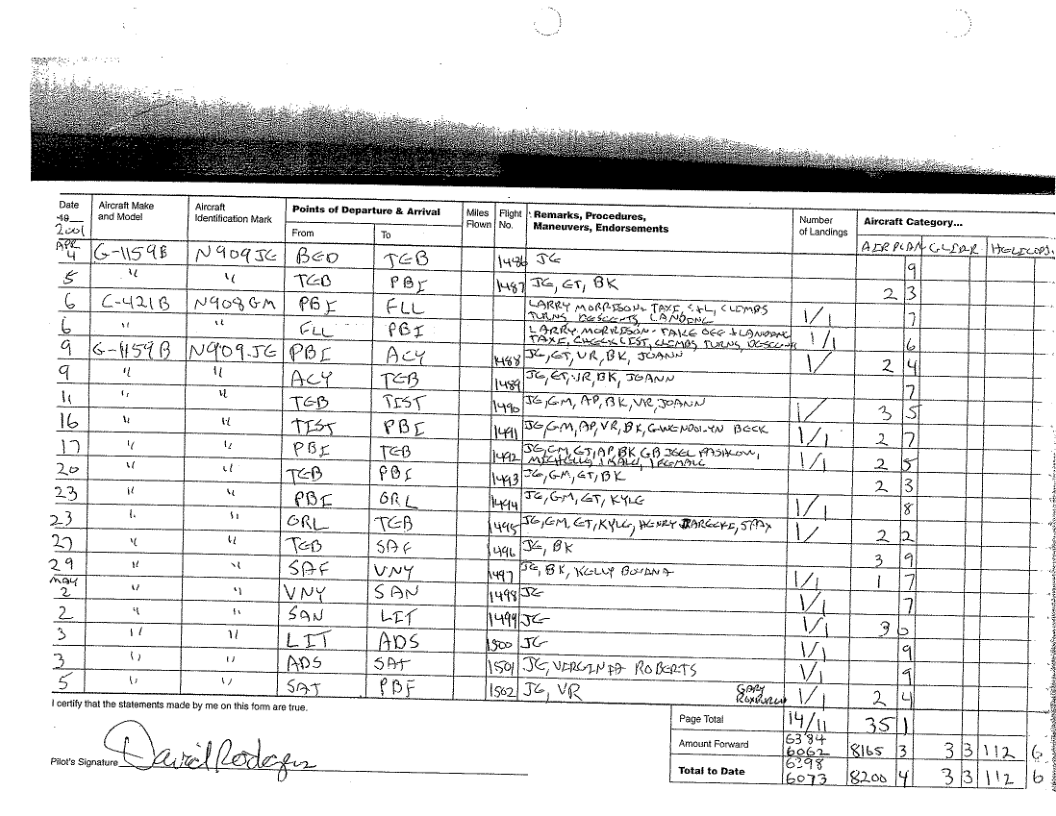 Date Aircraft Make and Model Aircraft Identification Mark Points of Departure & Arrival Miles Flown Flight No. Remarks, Procedures, Maneuvers, Endorsements Number of Landings Aircraft Category...
19 2001 From To AIRPLAN GLIDR HELICOP.
APR 4 G-1159B N909JG BED TEB 1486 JG 9
5 " " TEB PBI 1487 JG, ET, BK 2 3
6 C-421B N908GM PBI FLL LARRY MORRISON- TAXI, S+L, CLIMBS TURNS DESCENTS, LANDING 1/1 7
6 " " FLL PBI LARRY MORRISON- TAKE OFF + LANDING TAXI, CHECKLIST, CLIMBS TURNS, DESCENTS 1/1 6
9 G-1159B N909JG PBI ACY 1488 JG, ET, VR, BK, JOANN 1/ 2 4
9 " " ACY TEB 1489 JG, ET, VR, BK, JOANN 7
11 " " TEB TIST 1490 JG, GM, AP, BK, VR, JOANN 1/ 3 5
16 " " TIST PBI 1491 JG, GM, AP, VR, BK, GWENDOLYN BECK 1/1 2 7
17 " " PBI TEB 1492 JG, GM, ET, AP, BK GB JOEL PASHCOW, MICHELLE, 1 MALE, 1 FEMALE 1/1 2 5
20 " " TEB PBI 1493 JG, GM, ET, BK 2 3
23 " " PBI ORL 1494 JG, GM, ET, KYLE 1/1 8
23 " " ORL TEB 1495 JG, GM, ET, KYLE, HENRY 1/ 2 2
27 " " TEB SAF 1496 JG, BK 3 9
29 " " SAF VNY 1497 JG, BK, KELLY 1/1 1 7
MAY 2 " " VNY SAN 1498 JG 1/1 7
2 " " SAN LIT 1499 JG 1/1 3 0
3 " " LIT ADS 1500 JG 1/1 9
3 " " ADS SAT 1501 JG, VIRGINIA ROBERTS 1/1 9
5 " " SAT PBI 1502 JG, VR GARY ROXBURGH 1/1 2 4
I certify that the statements made by me on this form are true.
Page Total 14/11 35 1
Amount Forward 6384 6062 8165 3 3 3 112 6
Pilot's Signature David Rodgers
Total to Date 6398 6073 8200 4 3 3 112 6